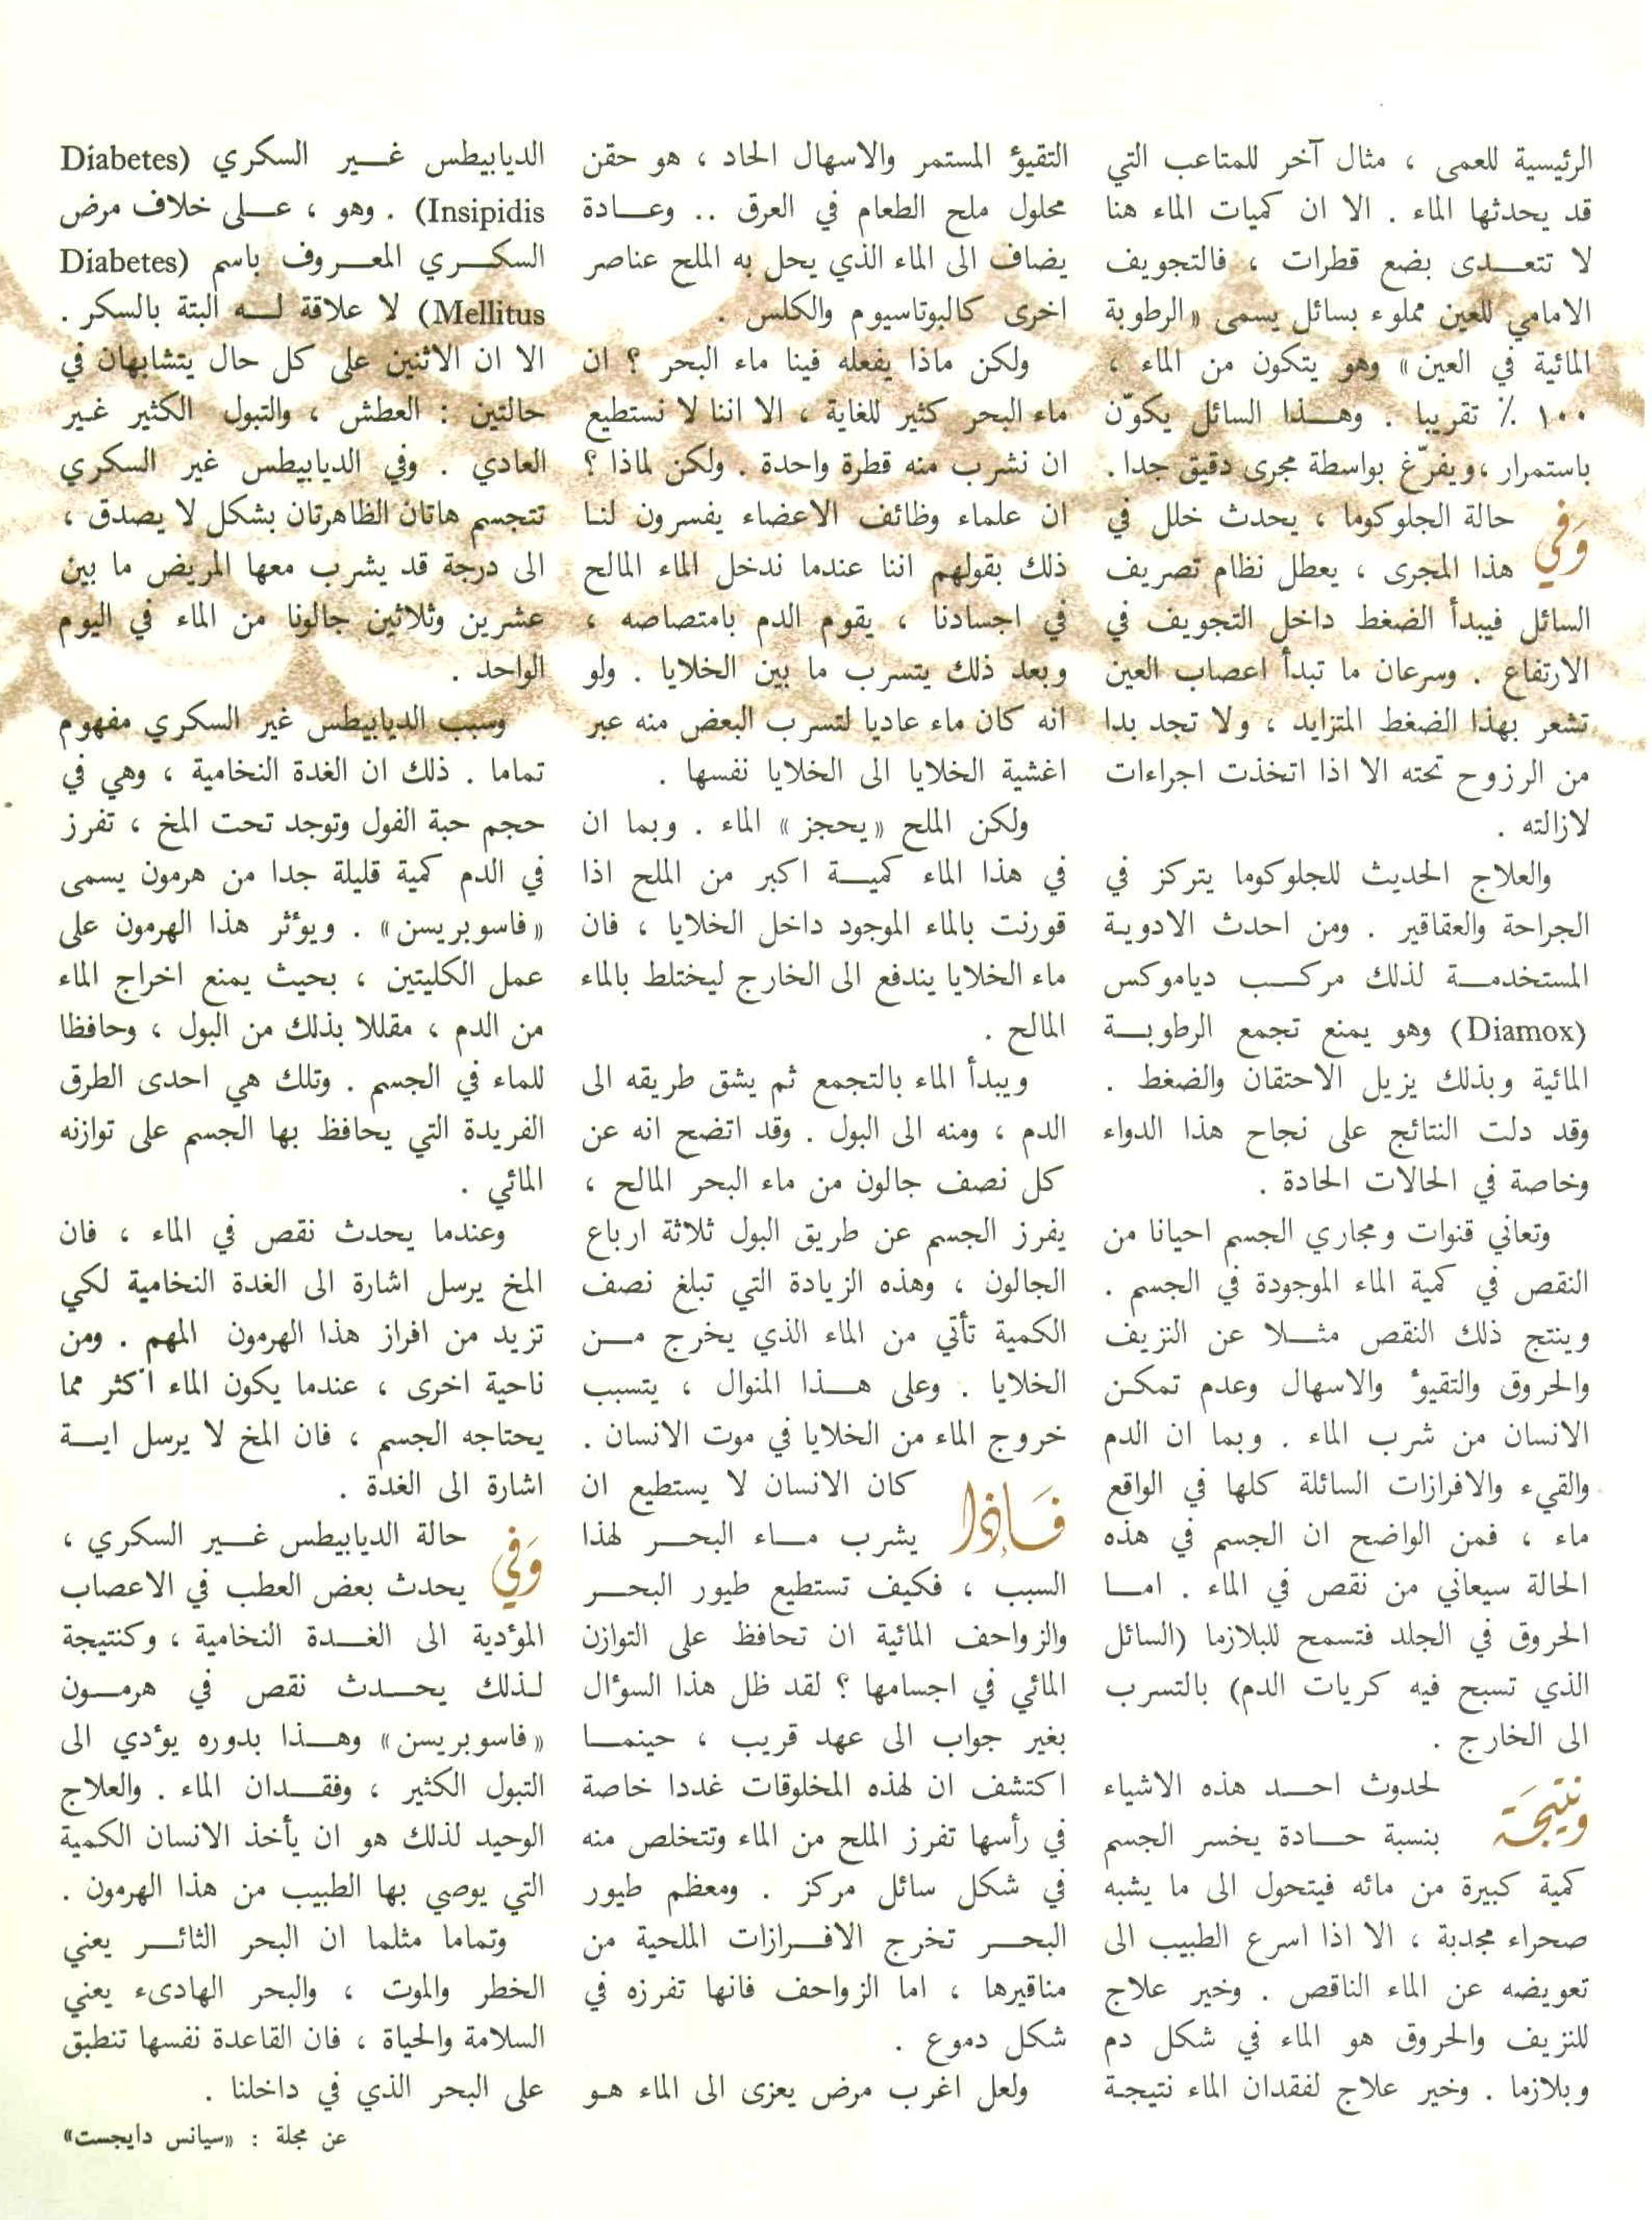 الرئيسية للعمى ، مثال آخر للمتاعب التي
قد يحدثها الماء . الا ان كميات الماء هنا
لا تتعـــدى بضع قطرات ، فالتجويف
الامامي للعين مملوء بسائل يسمى «الرطوبة
المائية في العين» وهو يتكون من الماء ،
١٠٠ ٪ تقريبا . وهـــذا السائل يكوّن
باستمرار ،ويفرّغ بواسطة مجرى دقيق جدا .
وَفي حالة الجلوكوما ، يحدث خلل في
هذا المجرى ، يعطل نظام تصريف
السائل فيبدأ الضغط داخل التجويف في
الارتفاع . وسرعان ما تبدأ اعصاب العين
تشعر بهذا الضغط المتزايد ، ولا تجد بدا
من الرزوح تحته الا اذا اتخذت اجراءات
لازالته .
والعلاج الحديث للجلوكوما يتركز في
الجراحة والعقاقير . ومن احدث الادوية
المستخدمـــة لذلك مركـــب دياموكس
(Diamox) وهو يمنع تجمع الرطوبـــة
المائية وبذلك يزيل الاحتقان والضغط .
وقد دلت النتائج على نجاح هذا الدواء
وخاصة في الحالات الحادة .
وتعاني قنوات ومجاري الجسم احيانا من
النقص في كمية الماء الموجودة في الجسم .
وينتج ذلك النقص مثـــلا عن النزيف
والحروق والتقيوٴ والاسهال وعدم تمكـن
الانسان من شرب الماء . وبما ان الدم
والقيء والافرازات السائلة كلها في الواقع
ماء ، فمن الواضح ان الجسم في هذه
الحالة سيعاني من نقص في الماء . امـــا
الحروق في الجلد فتسمح للبلازما (السائل
الذي تسبح فيه كريات الدم) بالتسرب
الى الخارج .
ونتيجَة لحدوث احـــد هذه الاشياء
بنسبة حـــادة يخسر الجسم
كمية كبيرة من مائه فيتحول الى ما يشبه
صحراء مجدبة ، الا اذا اسرع الطبيب الى
تعويضه عن الماء الناقص . وخير علاج
للنزيف والحروق هو الماء في شكل دم
وبلازما . وخير علاج لفقدان الماء نتيجـة
التقيوٴ المستمر والاسهال الحاد ، هو حقن
محلول ملح الطعام في العرق .. وعـــادة
يضاف الى الماء الذي يحل به الملح عناصر
اخرى كالبوتاسيوم والكلس .
ولكن ماذا يفعله فينا ماء البحر ؟ ان
ماء البحر كثير للغاية ، الا اننا لا نستطيع
ان نشرب منه قطرة واحدة . ولكن لماذا ؟
ان علماء وظائف الاعضاء يفسرون لنـا
ذلك بقولهم اننا عندما ندخل الماء المالح
في اجسادنا ، يقوم الدم بامتصاصه ،
وبعد ذلك يتسرب ما بين الخلايا . ولو
انه كان ماء عاديا لتسرب البعض منه عبر
اغشية الخلايا الى الخلايا نفسها .
ولكن الملح «يحجز» الماء . وبما ان
في هذا الماء كميـــة اكبر من الملح اذا
قورنت بالماء الموجود داخل الخلايا ، فان
ماء الخلايا يندفع الى الخارج ليختلط بالماء
المالح .
ويبدأ الماء بالتجمع ثم يشق طريقه الى
الدم ، ومنه الى البول . وقد اتضح انه عن
كل نصف جالون من ماء البحر المالح ،
يفرز الجسم عن طريق البول ثلاثة ارباع
الجالون ، وهذه الزيادة التي تبلغ نصف
الكمية تأتي من الماء الذي يخرج مـــن
الخلايا . وعلى هـــذا المنوال ، يتسبب
خروج الماء من الخلايا في موت الانسان .
فَـإذا كان الانسان لا يستطيع ان
يشرب مـــاء البحـــر لهذا
السبب ، فكيف تستطيع طيور البحـــر
والزواحف المائية ان تحافظ على التوازن
المائي في اجسامها ؟ لقد ظل هذا السوٴال
بغير جواب الى عهد قريب ، حينمـــا
اكتشف ان لهذه المخلوقات غددا خاصة
في رأسها تفرز الملح من الماء وتتخلص منه
في شكل سائل مركز . ومعظم طيور
البحـــر تخرج الافـــرازات الملحية من
مناقيرها ، اما الزواحف فانها تفرزه في
شكل دموع .
ولعل اغرب مرض يعزى الى الماء هـو
الديابيطس غـــير السكري (Diabetes
Insipidis) . وهو ، عـــلى خلاف مرض
السكـــري المعـــروف باسم (Diabetes
Mellitus) لا علاقة لـــه البتة بالسكر .
الا ان الاثنين على كل حال يتشابهان في
حالتين : العطش ، والتبول الكثير غـير
العادي . وفي الديابيطس غير السكري
تتجسم هاتان الظاهرتان بشكل لا يصدق ،
الى درجة قد يشرب معها المريض ما بين
عشرين وثلاثين جالونا من الماء في اليوم
الواحد .
وسبب الديابيطس غير السكري مفهوم
تماما . ذلك ان الغدة النخامية ، وهي في
حجم حبة الفول وتوجد تحت المخ ، تفرز
في الدم كمية قليلة جدا من هرمون يسمى
«فاسوبريسن» . ويوٴثر هذا الهرمون على
عمل الكليتين ، بحيث يمنع اخراج الماء
من الدم ، مقللا بذلك من البول ، وحافظا
للماء في الجسم . وتلك هي احدى الطرق
الفريدة التي يحافظ بها الجسم على توازنه
المائي .
وعندما يحدث نقص في الماء ، فان
المخ يرسل اشارة الى الغدة النخامية لكي
تزيد من افراز هذا الهرمون المهم . ومن
ناحية اخرى ، عندما يكون الماء اكثر مما
يحتاجه الجسم ، فان المخ لا يرسل ايـــة
اشارة الى الغدة .
وَفي حالة الديابيطس غـــير السكري ،
يحدث بعض العطب في الاعصاب
الموٴدية الى الغـــدة النخامية ، وكنتيجة
لـذلك يحـــدث نقص في هرمـــون
«فاسوبريسن» وهـــذا بدوره يوٴدي الى
التبول الكثير ، وفقـــدان الماء . والعلاج
الوحيد لذلك هو ان يأخذ الانسان الكمية
التي يوصي بها الطبيب من هذا الهرمون .
وتماما مثلما ان البحر الثائـــر يعني
الخطر والموت ، والبحر الهادىء يعني
السلامة والحياة ، فان القاعدة نفسها تنطبق
على البحر الذي في داخلنا .
عن مجلة : «سيانس دايجست»